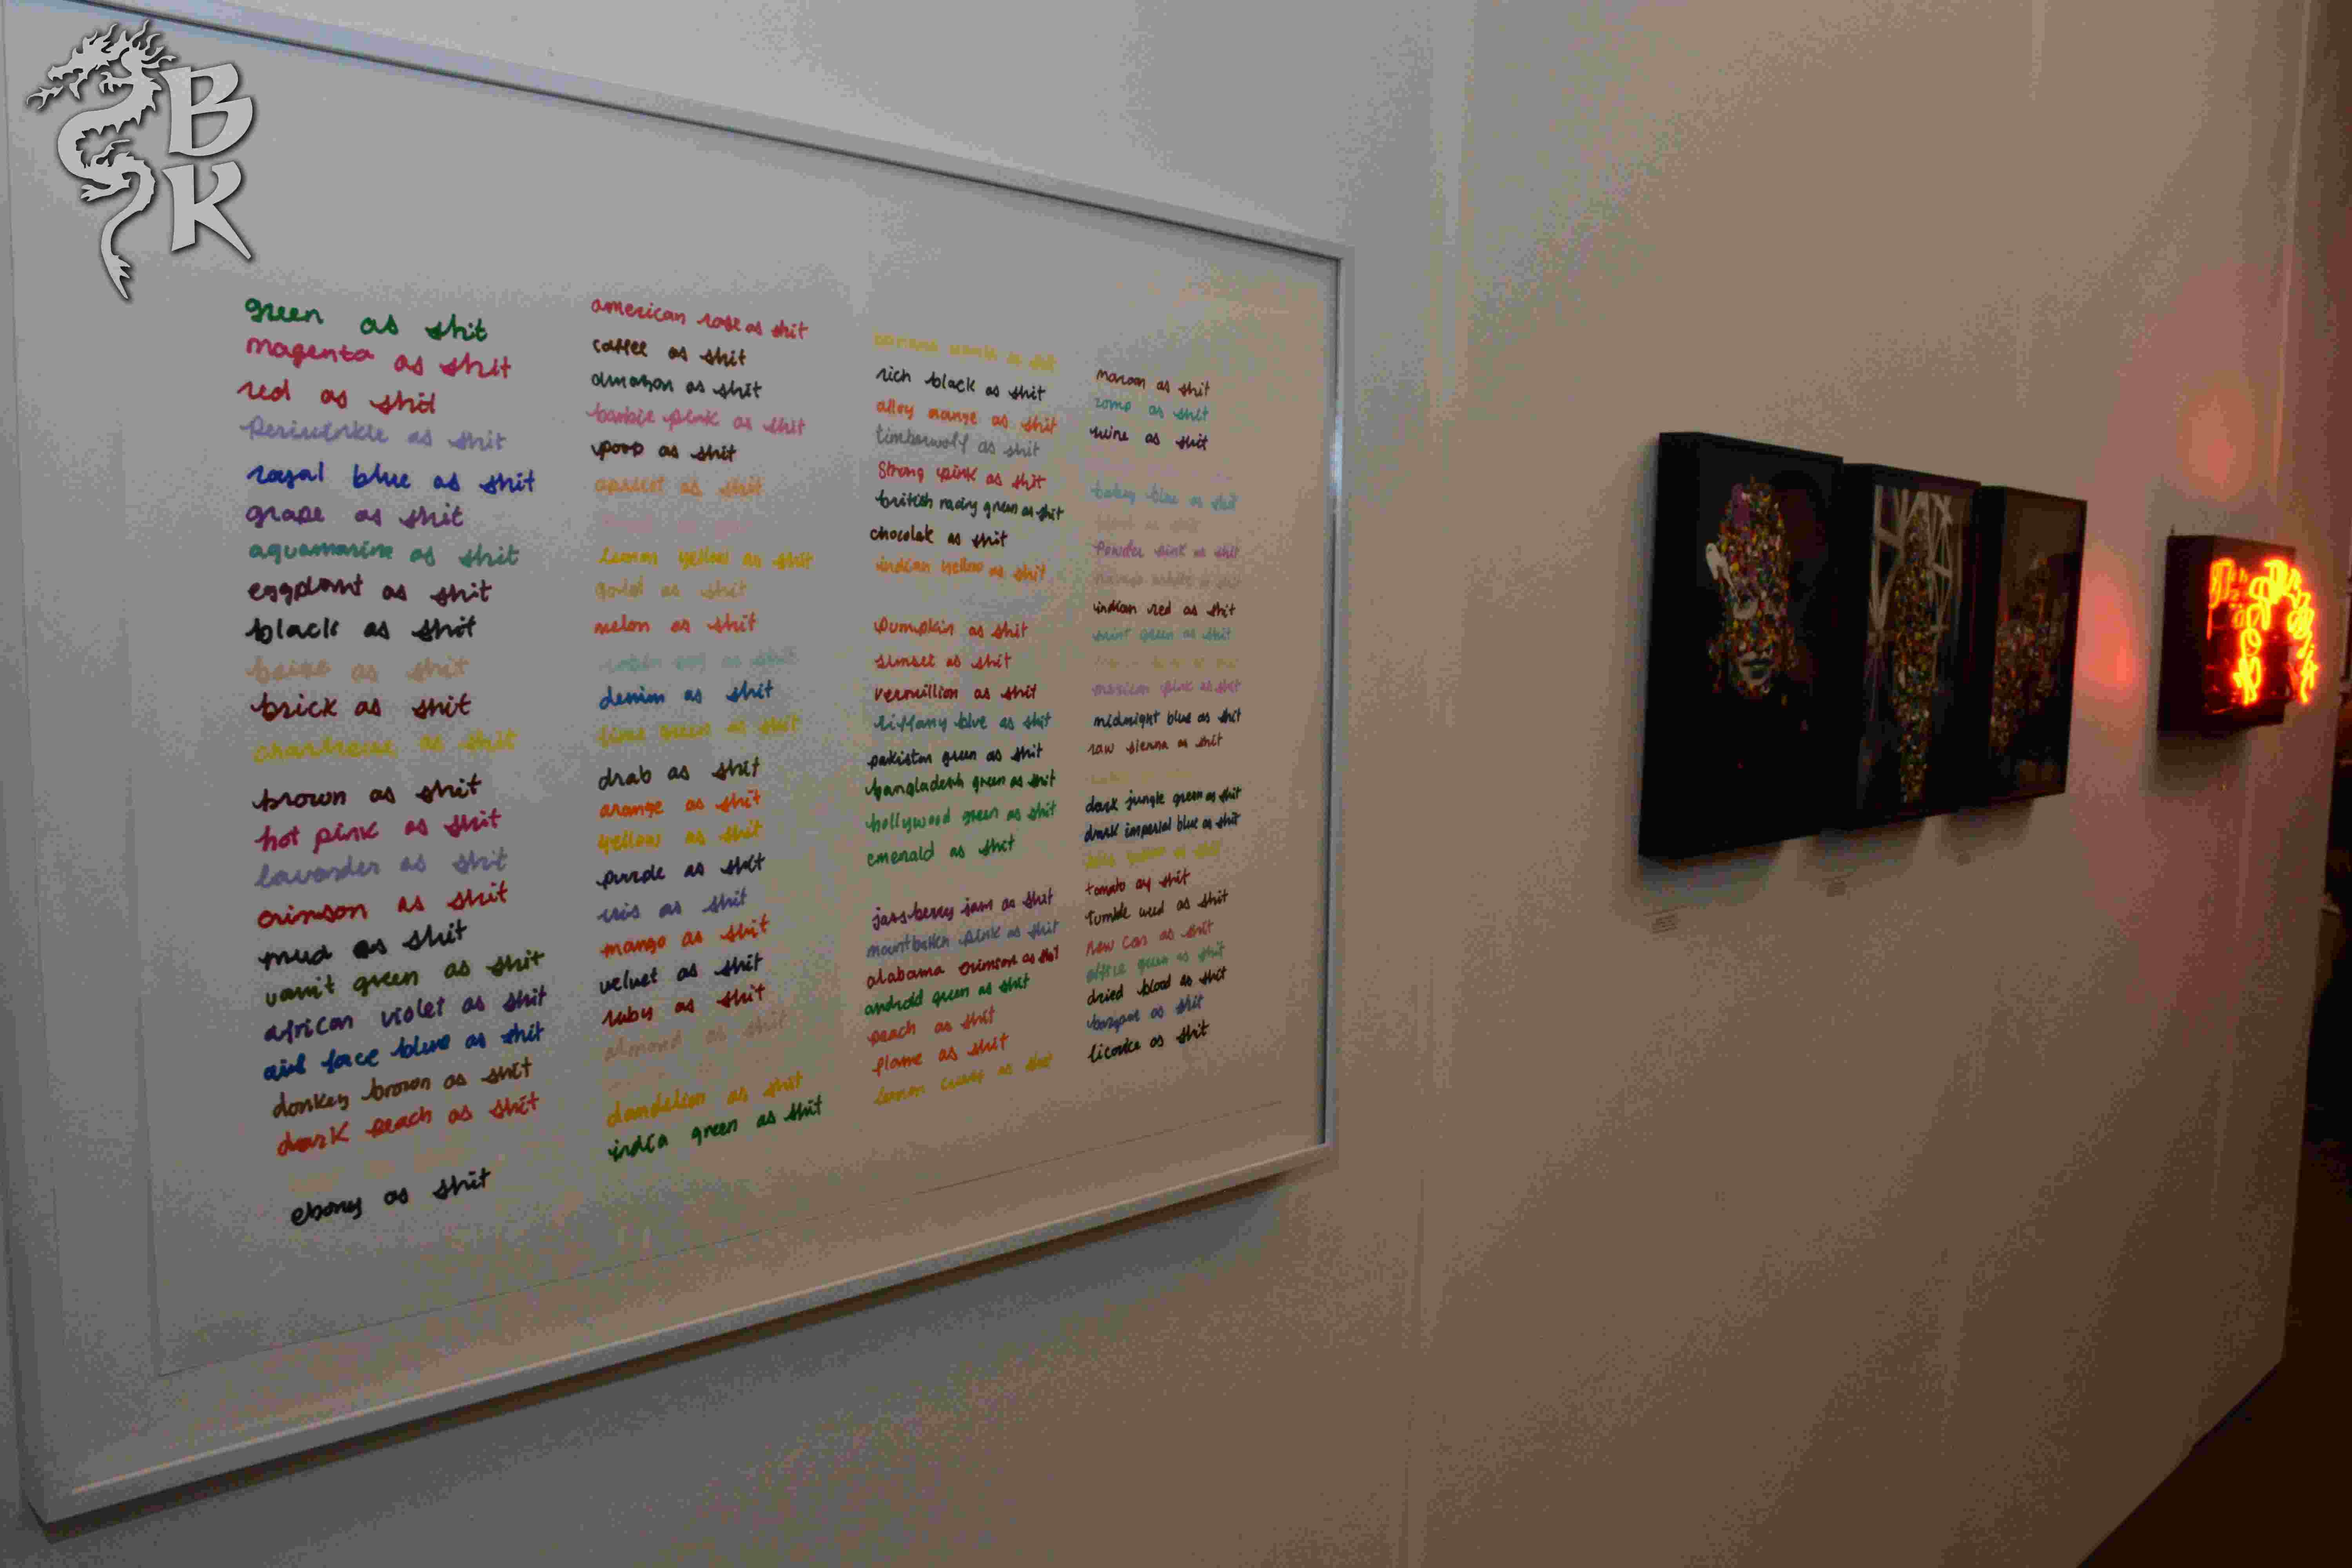 BK
green as shit
magenta as shit
red as shit
Periwinkle as shit
royal blue as shit
grape as shit
aquamarine as shit
eggplant as shit
black as shit
beige as shit
brick as shit
chartreuse as shit
brown as shit
hot pink as shit
lavander as shit
crimson as shit
mud as shit
vomit green as shit
african violet as shit
air force blue as shit
donkey brown as shit
dark peach as shit
ebony as shit
american rose as shit
coffee as shit
amazon as shit
barbie pink as shit
poop as shit
apricot as shit
lemon yellow as shit
gold as shit
melon as shit
robin egg as shit
denim as shit
lime green as shit
drab as shit
orange as shit
yellow as shit
purple as shit
iris as shit
mango as shit
velvet as shit
ruby as shit
almond as shit
dandelion as shit
india green as shit
banana mania as shit
rich black as shit
alloy orange as shit
timberwolf as shit
Strong pink as shit
british racing green as shit
chocolate as shit
indian yellow as shit
Pumpkin as shit
sunset as shit
vermillion as shit
tiffany blue as shit
pakistan green as shit
bangladesh green as shit
hollywood green as shit
emerald as shit
jazzberry jam as shit
mountbatten pink as shit
alabama crimson as shit
android green as shit
peach as shit
flame as shit
lemon curry as shit
maroon as shit
zomp as shit
wine as shit
baby blue as shit
as shit
Powder pink as shit
navajo white as shit
indian red as shit
mint green as shit
mexican pink as shit
midnight blue as shit
raw sienna as shit
dark jungle green as shit
dark imperial blue as shit
yellow as shit
tomato as shit
tumble weed as shit
new car as shit
office green as shit
dried blood as shit
as shit
licorice as shit